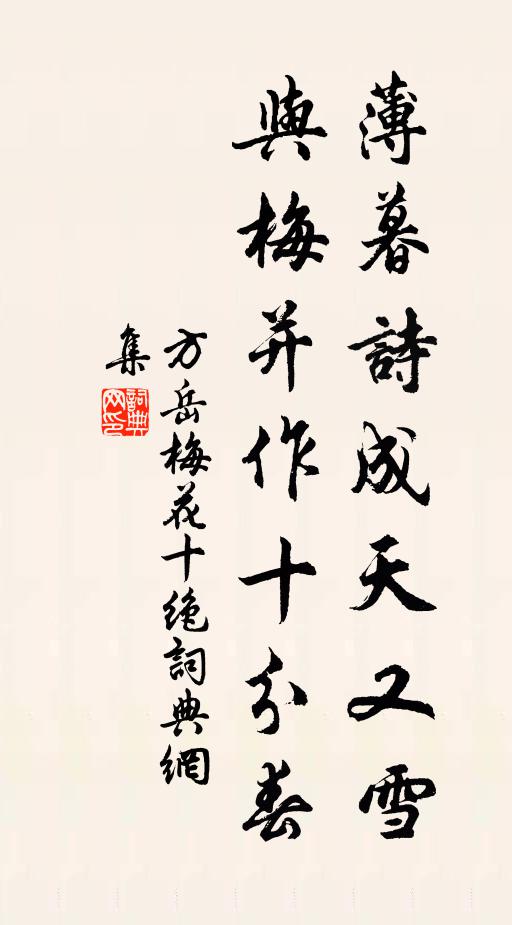 薄暮詩成天又雪
與梅并作十分春
方岳梅花十絶詞典網
集
詞典网印